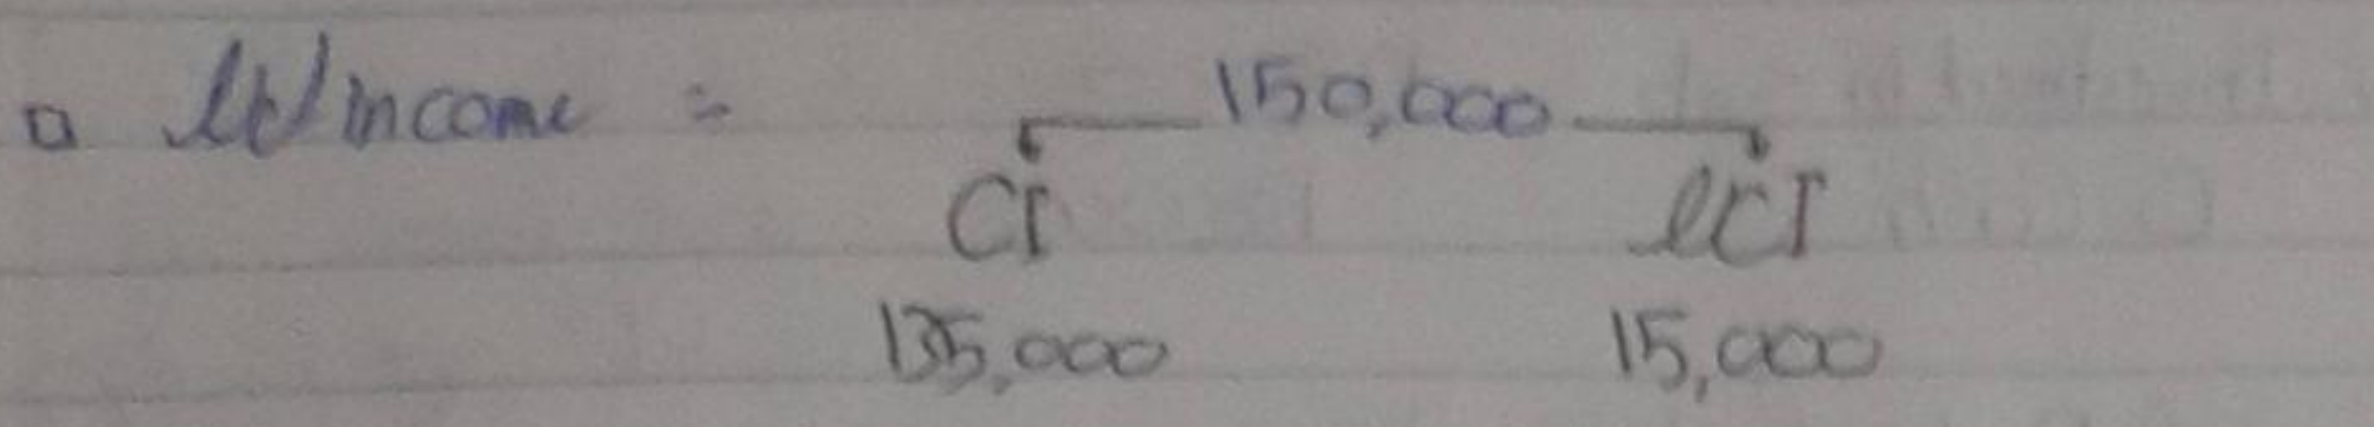 ▫ N/income = 150,000
CI NCI
135,000 15,000